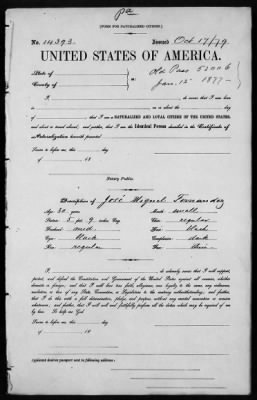 pa
[FORM FOR NATURALIZED CITIZEN.]
No. 14393. Issued Oct 17/79
UNITED STATES OF AMERICA.
State of
County of } ss: Old Pass 52006
Jan. 15 1877
I do swear that I was born
in on or about the day
of ; that I am a NATURALIZED AND LOYAL CITIZEN OF THE UNITED STATES,
and about to travel abroad; and further, that I am the Identical Person described in the Certificate of
Naturalization herewith presented.
Sworn to before me, this day
of 18
Notary Public.
Description of José Miguel
Age: 30 years Mouth: small
Stature: 5 ft 9 inches Eng. Chin: regular
Forehead: med. Hair: black
Eyes: black Complexion: dark
Nose: regular Face: thin
I, do solemnly swear that I will support,
protect, and defend the Constitution and Government of the United States against all enemies, whether
domestic or foreign; and that I will bear true faith, allegiance, and loyalty to the same, any ordinance,
resolution, or law of any State, Convention, or Legislature to the contrary notwithstanding; and further,
that I do this with a full determination, pledge, and purpose, without any mental reservation or evasion
whatsoever; and further, that I will well and faithfully perform all the duties which may be required of me
by law. So help me God.
Sworn to before me, this day
of 18
Applicant desires passport sent to following address: